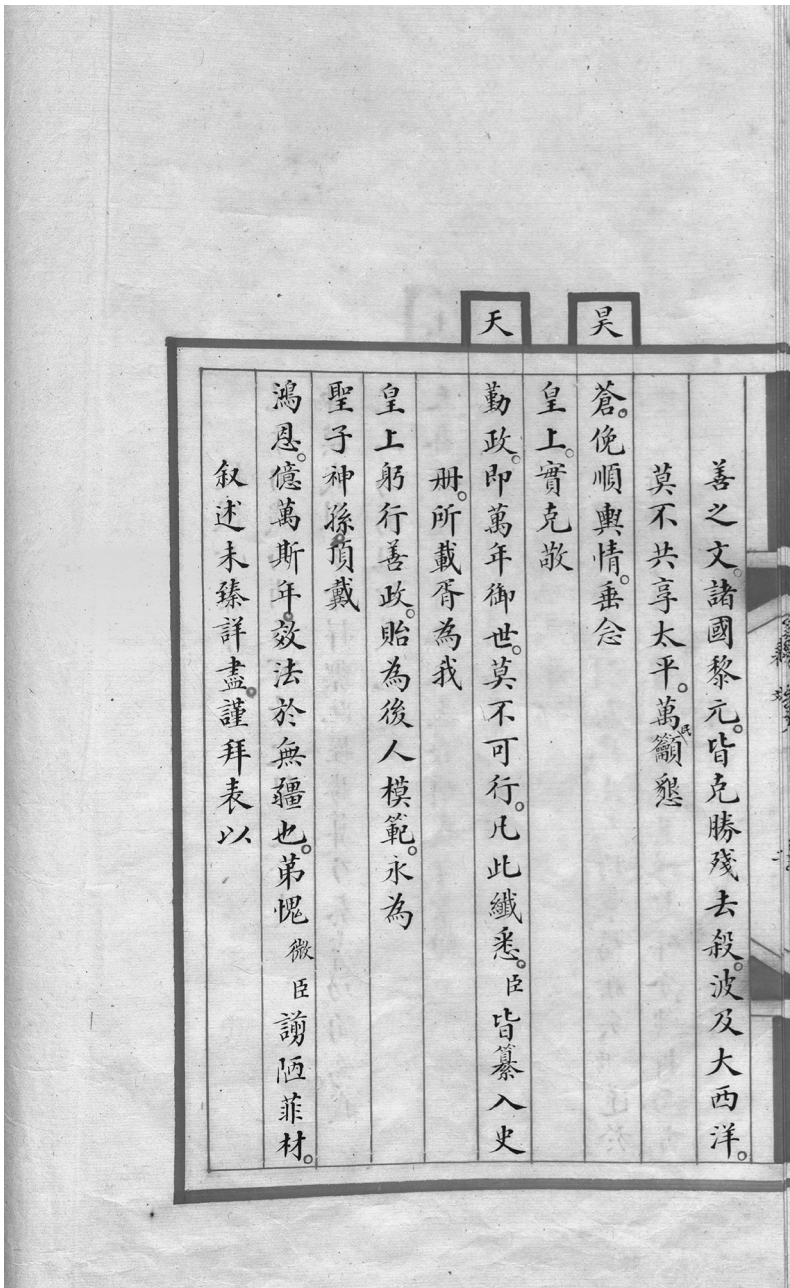 善之文。諸國黎元。皆克勝殘去殺。波及大西洋。
莫不共享太平。萬民籲懇
昊蒼。俛順輿情。垂念
皇上。實克敬
天勤政。即萬年御世。莫不可行。凡此纖悉。臣皆纂入史
册。所載胥為我
皇上躬行善政。貽為後人模範。永為
聖子神孫。頂戴
鴻恩。億萬斯年。效法於無疆也。第愧微臣謭陋菲材。
叙述未臻詳盡。謹拜表以